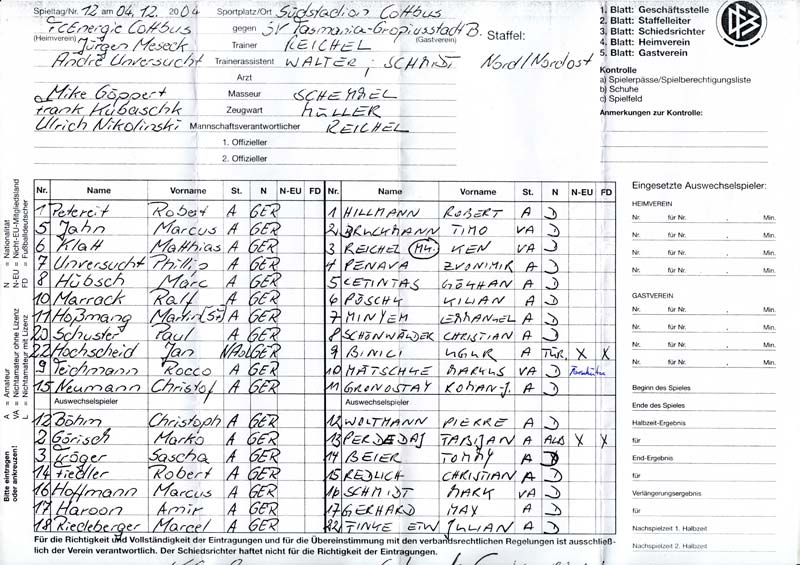 Spieltag/Nr. 12 am 04.12.2004 Sportplatz/Ort Südstadion Cottbus
FC Energie Cottbus gegen SV Tasmania-Gropiusstadt B. Staffel:
(Heimverein) (Gastverein)
Jürgen Meseck Trainer REICHEL
André Unversucht Trainerassistent WALTER ; SCHMIDT Nord/Nordost
Arzt
Mike Göppert Masseur SCHEMMEL
Frank Kubaschk Zeugwart MÜLLER
Ulrich Nikolinski Mannschaftsverantwortlicher REICHEL
1. Offizieller
2. Offizieller
1. Blatt: Geschäftsstelle
2. Blatt: Staffelleiter
3. Blatt: Schiedsrichter
4. Blatt: Heimverein
5. Blatt: Gastverein
Kontrolle
a) Spielerpässe/Spielberechtigungsliste
b) Schuhe
c) Spielfeld
Anmerkungen zur Kontrolle:
Nr. Name Vorname St. N N-EU FD Nr. Name Vorname St. N N-EU FD
1 Petereit Robert A GER 1 HILLMANN ROBERT A D
5 Jahn Marcus A GER 2 BRUCKMANN TIMO VA D
6 Klatt Matthias A GER 3 REICHEL KEN VA D
7 Unversucht Phillip A GER 4 PENAVA ZVONIMIR A D
8 Hübsch Marc A GER 5 CETINTAS GÖKHAN A D
10 Marrack Ralf A GER 6 PÖSCHK KILIAN A D
11 Hoßmang Martin A GER 7 MINYEM A D
20 Schuster Paul A GER 8 SCHÖNWÄLDER CHRISTIAN A D
22 Hochscheid Jan GER 9 BINICI UGUR A TÜR. X X
9 Teichmann Rocco A GER 10 MATSCHKE MARKUS VA D
15 Neumann Christof A GER 11 GRONOSTAY ROMAN-J. A D
Auswechselspieler Auswechselspieler
12 Böhm Christoph A GER 12 WOLTMANN PIERRE A D
2 Görisch Marko A GER 13 PERDEDAJ TABIJAN A ALB X X
3 Tröger Sascha A GER 14 BEIER TOMMY A D
14 Fiedler Robert A GER 15 REDLICH CHRISTIAN A D
16 Hoffmann Marcus A GER 16 SCHMIDT MARK VA D
17 Haroon Amir A GER 17 GERHARD MAX A D
18 Riedeberger Marcel A GER 22 JULIAN A D
Für die Richtigkeit und Vollständigkeit der Eintragungen und für die Übereinstimmung mit den verbandsrechtlichen Regelungen ist ausschließ-
lich der Verein verantwortlich. Der Schiedsrichter haftet nicht für die Richtigkeit der Eintragungen.
Eingesetzte Auswechselspieler:
HEIMVEREIN
Nr. für Nr. Min.
Nr. für Nr. Min.
Nr. für Nr. Min.
Nr. für Nr. Min.
GASTVEREIN
Nr. für Nr. Min.
Nr. für Nr. Min.
Nr. für Nr. Min.
Nr. für Nr. Min.
Beginn des Spieles
Ende des Spieles
Halbzeit-Ergebnis
für
End-Ergebnis
für
Verlängerungsergebnis
für
Nachspielzeit 1. Halbzeit
Nachspielzeit 2. Halbzeit
N = Nationalität
N-EU = Nicht-EU-Mitgliedsland
FD = Fußballdeutscher
A = Amateur
VA = Nichtamateur ohne Lizenz
L = Nichtamateur mit Lizenz
Bitte eintragen
oder ankreuzen!